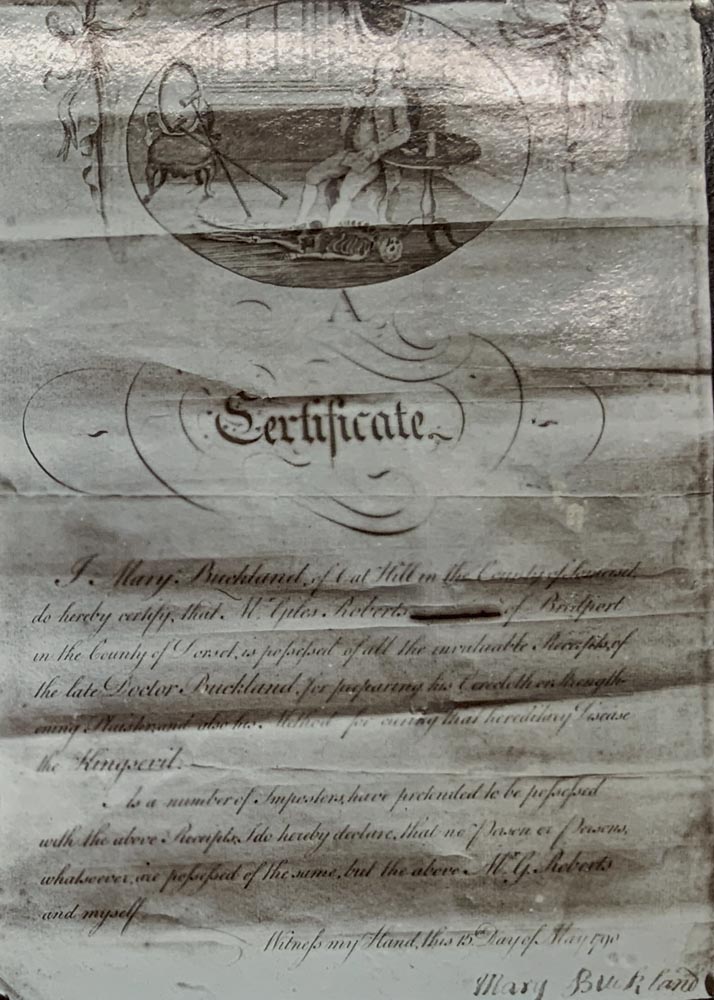 A
Certificate
I Mary Buckland, of Cat Hill in the County of Somerset,
do hereby certify, that Mr. Giles Roberts of Bridport
in the County of Dorset, is possessed of all the invaluable Receipts, of
the late Doctor Buckland, for preparing his Cerecloth or strength-
ening Plaister, and also his Method for curing that hereditary Disease
the Kingsevil.
As a number of Imposters, have pretended to be possessed
with the above Receipts, I do hereby declare, that no Person or Persons,
whatsoever, are possessed of the same, but the above Mr. G. Roberts
and myself
Witness my Hand, this 15th Day of May 1790
Mary Buckland